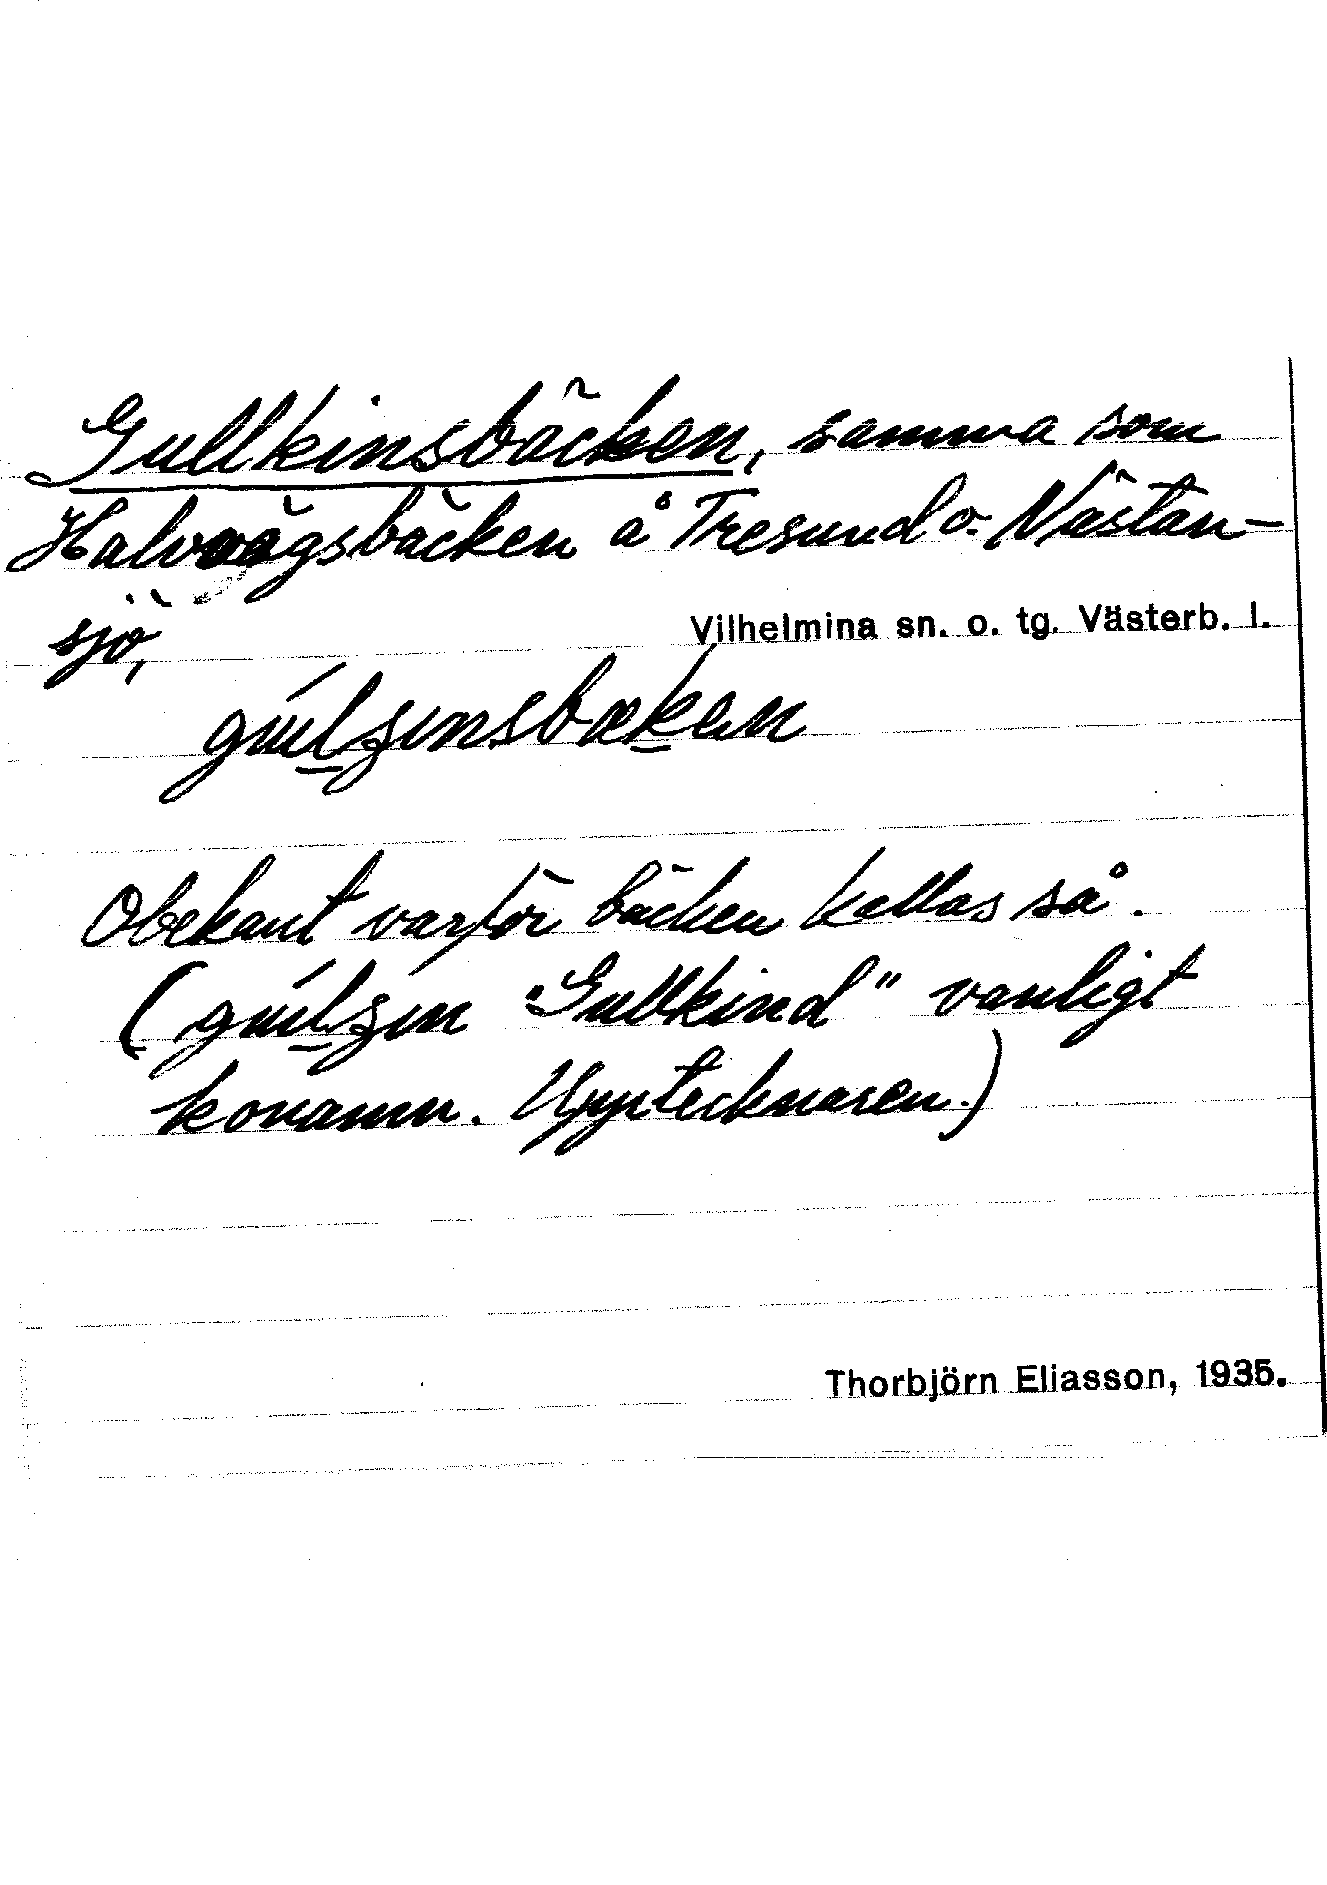 Gullkinsbäcken, samma som
Halvvägsbäcken å Tresund o. Nästan-
sjö,
Vilhelmina sn. o. tg. Västerb. l.
Obekant varför bäcken kallas så.
"Gullkind" vanligt
konamn. Upptecknaren.)
Thorbjörn Eliasson, 1935.